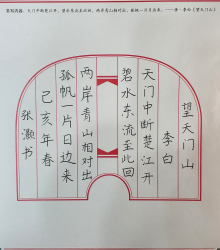 书写内容：天门中断楚江开，碧水东流至此回。两岸青山相对出，孤帆一片日边来。——唐·李白《望天门山》
望天门山
李白
天门中断楚江开
碧水东流至此回
两岸青山相对出
孤帆一片日边来
己亥年春
张灏书